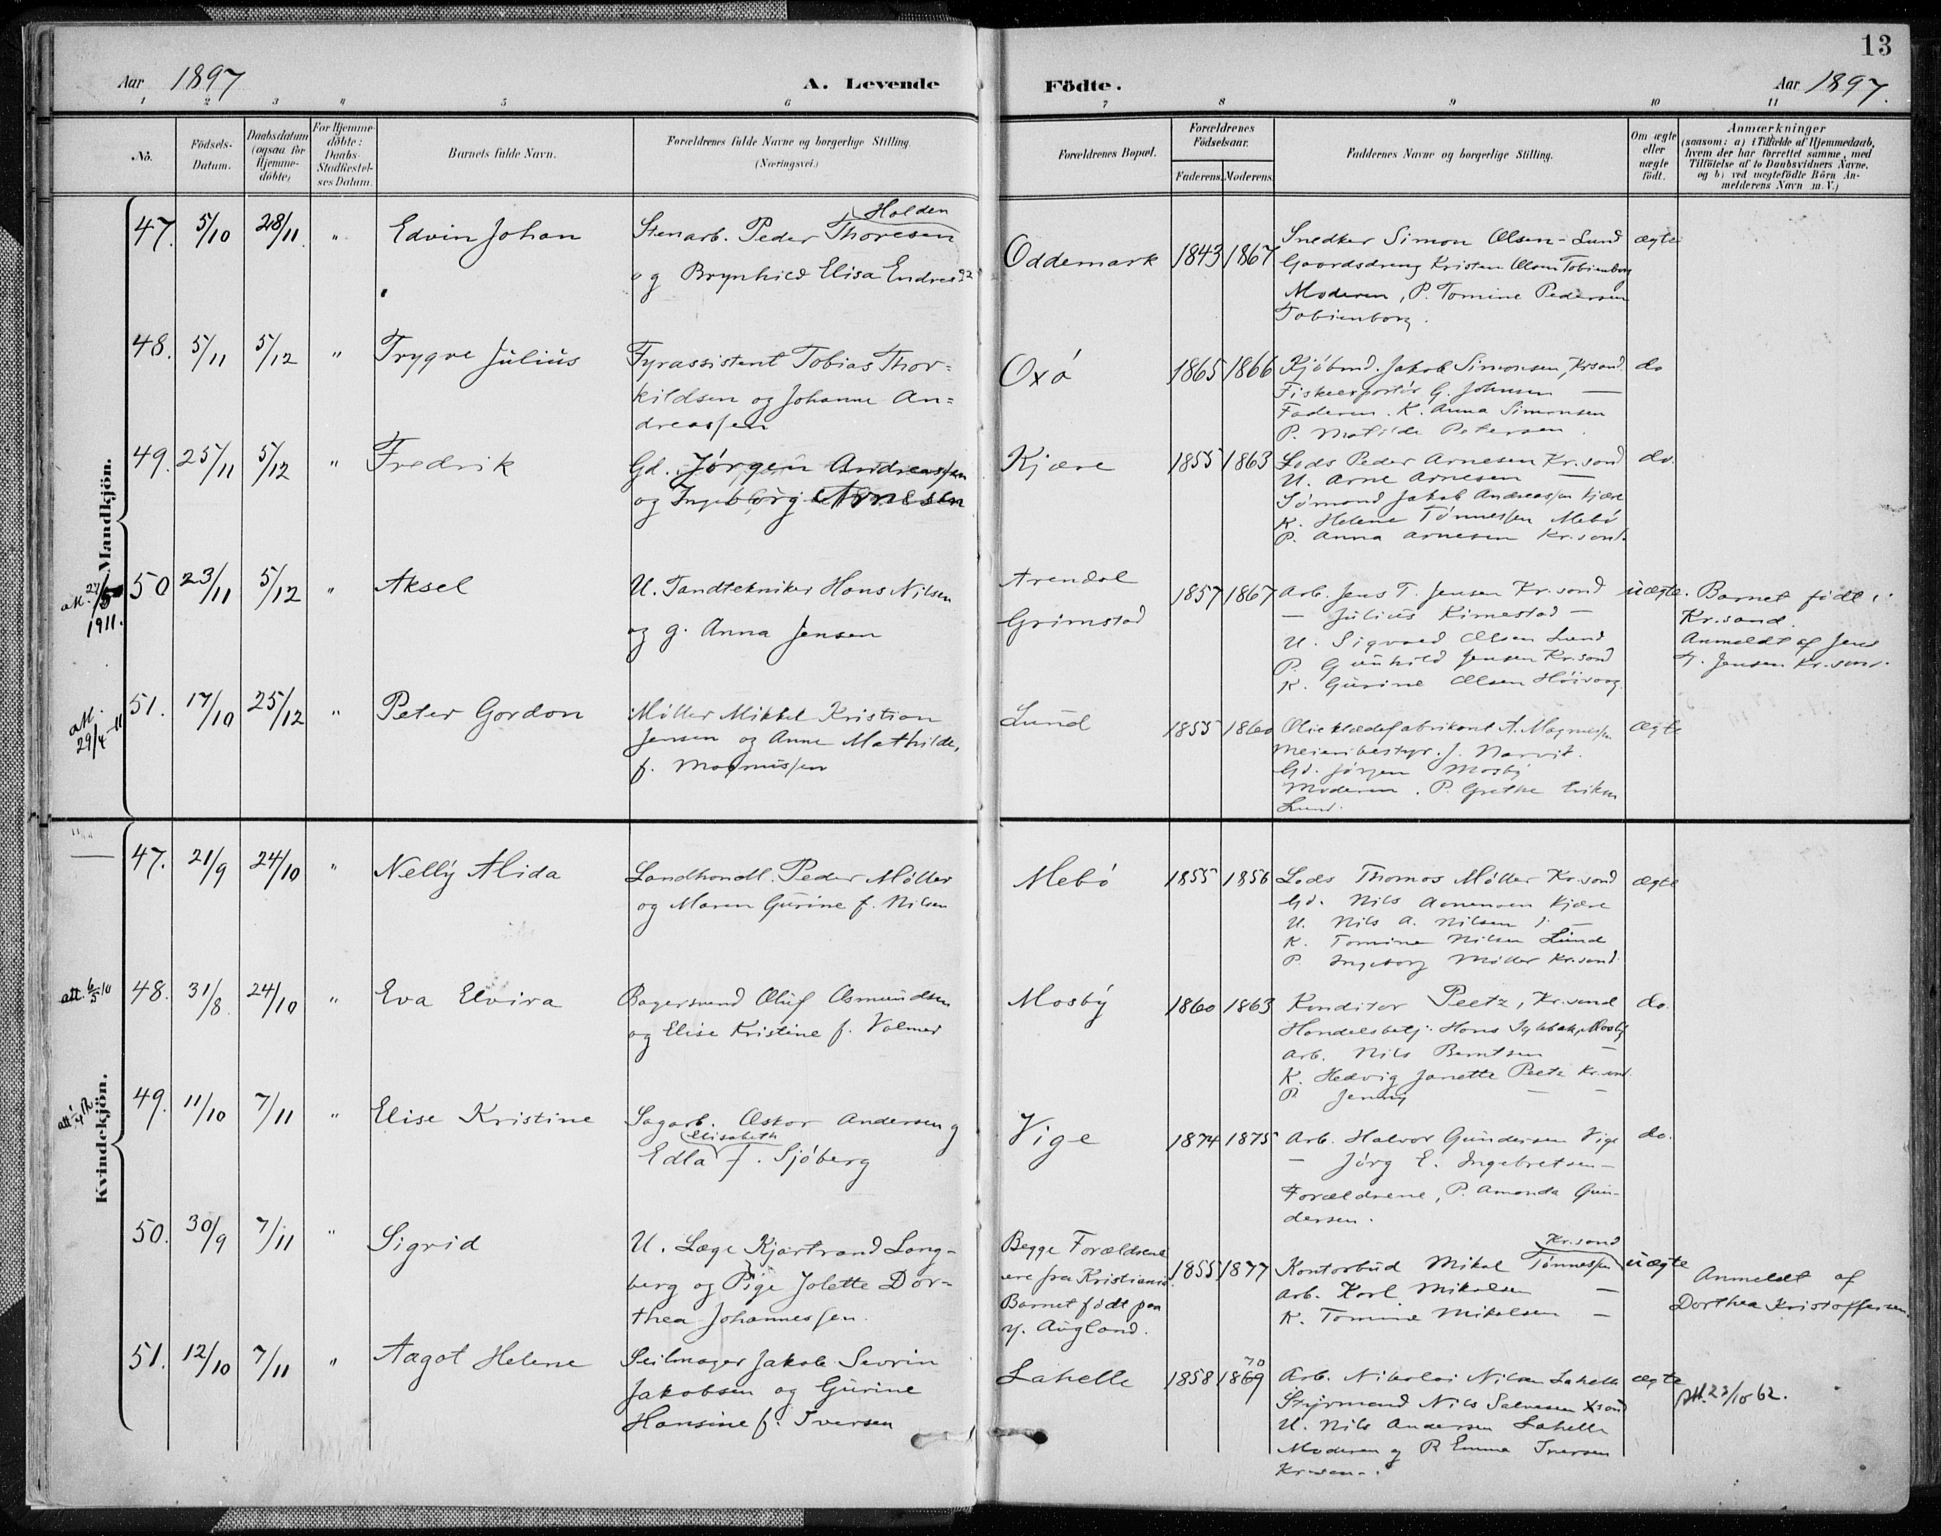 13
Aar 1897 A. Levende Födte. Aar 1897.
1 2 3 4 5 6 7 8 9 10 11
No.
Födsels-Datum.
Daabsdatum (ogsaa for Hjemme-döbte)
For Hjemme-döbte: Daabs-Stadfæstel-ses Datum.
Barnets fulde Navn.
Forældrenes fulde Navne og borgerlige Stilling. (Næringsvei.)
Forældrenes Bopæl.
Forældrenes Födselsaar.
Faderens. Moderens.
Faddernes Navne og borgerlige Stilling.
Om ægte eller uægte födt.
Anmærkninger
(saasom: a) i Tilfælde af Hjemmedaab, hvem der har forrettet samme, med Tilföielse af to Daabsvidners Navne, og b) ved uægtefödte Börn An-melderens Navn m. V.)
Mandkjön.
47. 5/10 28/11 " Edvin Johan
Holden
Stenarb. Peder Thoresen
og Brynhild Elisa
Oddemark 1843 1867
Snedker Simon Olsen - Lund
Gaardsdreng Kristen Olsen Tobienborg
Moderen, P. Tomine Pedersen
Tobienborg.
ægte
48. 5/11 5/12 " Trygve Julius
Fyrassistent Tobias Thor=
kildsen og Johanne An=
dreassen
Oxö 1865 1866
Kjöbmd. Jakob Simonsen, Krsand.
Fiskeexportör G. Johnsen —
Faderen. K. Anna Simonsen
P. Matilde Petersen.
do
49. 25/11 5/12 " Fredrik
Gd. Jørgen Andreassen
og Ingeborg Arnesen
Kjære 1855 1863
Lods Peder Arnesen Kr.sand
U. Arne Arnesen —
Sömand Jakob Andreassen Kjære
K. Helene Tönnessen Mebö
P. Anna Arnesen Kr.sand.
do.
1911.
50 23/11 5/12 " Aksel
U. Tandtekniker Hans Nilsen
og g. Anna Jensen
Arendal
Grimstad
1857 1867
Arb. Jens T. Jensen Kr.sand
— Julius Kimestad —
U. Sigvald Olsen Lund
P. Gunhild Jensen Kr.sand
K. Gurine Olsen
uægte.
Barnet födt i
Kr.sand.
Anmeldt af Jens
T. Jensen Kr.sand.
att. 29/4-11
51. 17/10 25/12 " Peter Gordon
Möller Mikkel Kristian
Jensen og Anne Mathilde,
f. Magnussen
Lund 1855 1860
Olieklædefabrikant A. Magnussen
Meieribestyr. J.
Gd. Jörgen Mosby
Moderen. P. Grethe
Lund.
ægte
Kvindekjön.
47. 21/9 24/10 " Nelly Alida
Landhandl. Peder Möller
og Maren Gurine f. Nilsen
Mebö 1855 1856
Lods Thomas Möller Kr.sand
Gd. Nils Kjære
U. Nils A. Nilsen —
K. Tomine Nilsen Lund
P. Ingeborg Möller Kr.sand.
ægte
att. 6/5 10
48. 31/8 24/10 " Eva Elvira
Bagersvend Oluf Osmundsen
og Elise Kristine f. Volmer
Mosby 1860 1863
Konditor Peetz, Kr.sand
Handelsbetj. Hans Mosby
Arb. Nils Berntsen —
K. Hedvig Janette Peetz Kr.sand.
P. Jenny — —
do.
49. 11/10 7/11 " Elise Kristine
Sagarb. Oskar Andersen og
Elisabeth
Edla f. Sjöberg
Vige 1874 1875
Arb. Halvor Gundersen Vige
— Jörg E. Ingebretsen —
Forældrene, P. Amanda Gun-
dersen.
do.
50. 30/9 7/11 " Sigrid
U. Læge Kjartrand Lang-
berg og Pige Jolette Dor-
thea Johannessen.
Begge Forældrene
ere fra Kristiania.
Barnet födt paa
y. Augland.
1855 1877
Kr.sand
Kontorbud Mikal Tönnessen
Arb. Karl Mikalsen —
K. Tomine Mikalsen —
uægte
Anmeldt af
Dorthea Kristoffersen.
51. 12/10 7/11 " Aagot Helene
Seilmager Jakob Sevrin
Jakobsen og Gurine
Hansine f. Iversen
Lahelle 1858 1869
70
Arb. Nikolai Nilsen Lahelle
Styrmand Nils Salvesen Krsand
U. Nils Andersen Lahelle
Moderen og P. Emma Iversen
ægte
att. 23/10 62.